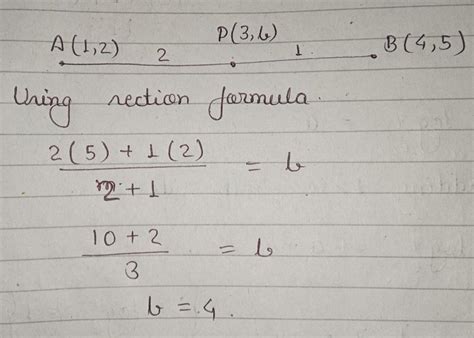 A(1,2) 2 P(3,b) 1 B(4,5)
Using section formula.
2(5) + 1(2) / 2 + 1 = b
10 + 2 / 3 = b
b = 4.